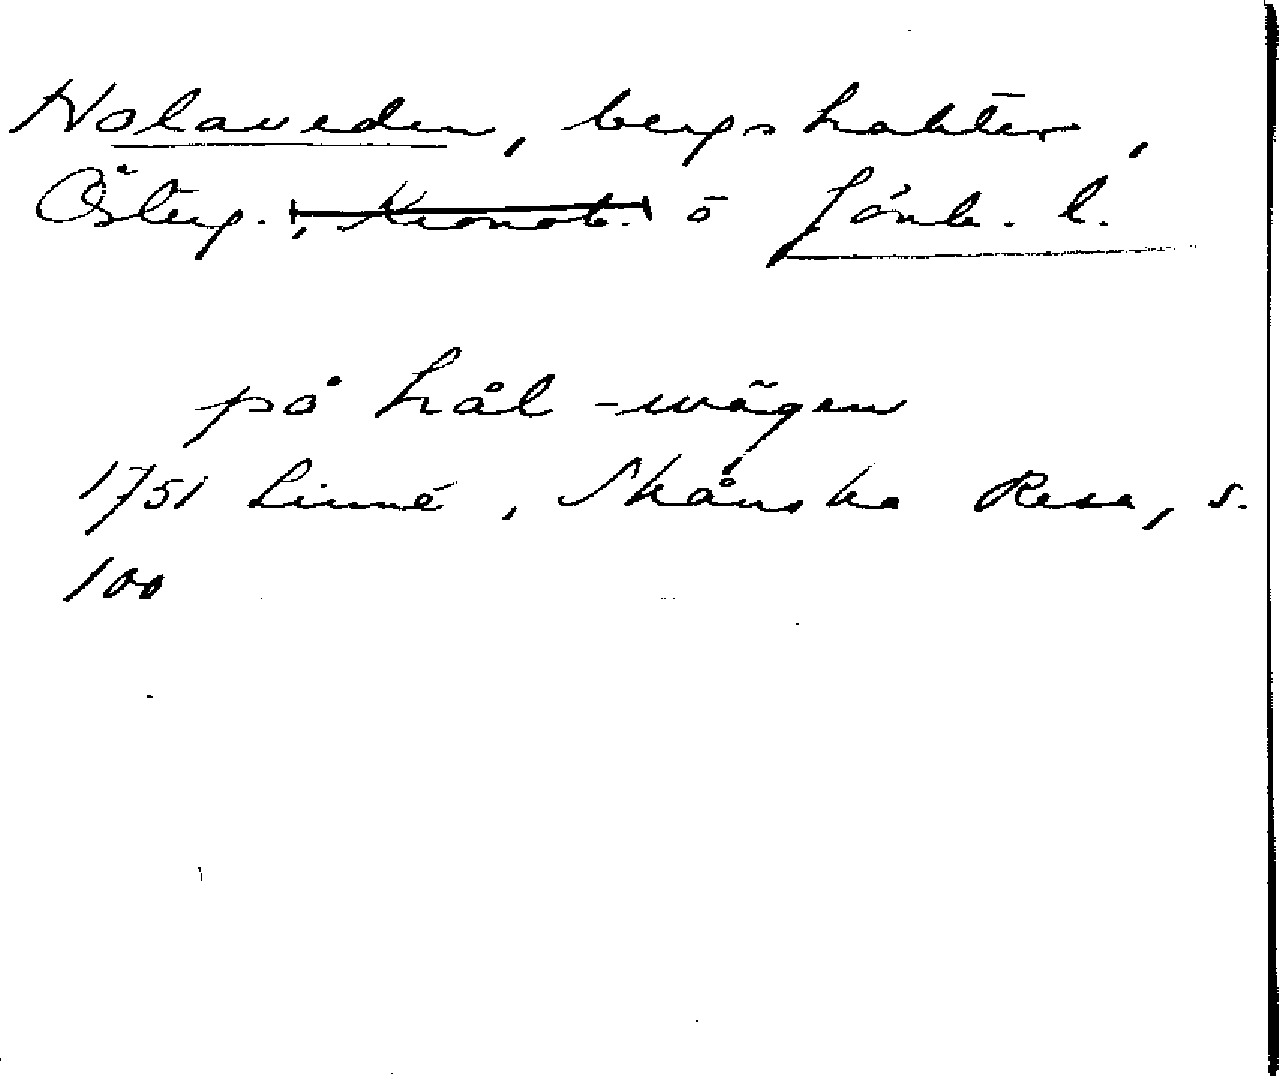 Holaveden, bergstrakter,
Österg. , Kronob. o Jönk. l.
på hål-wägen
1751 Linné, Skånska Resa, s.
100